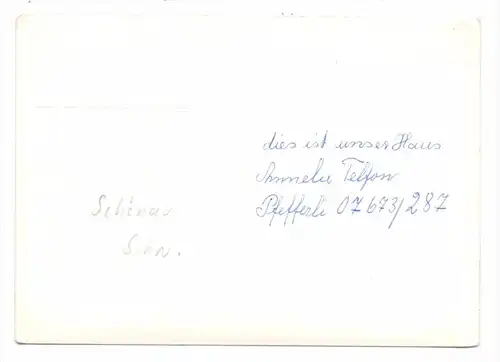 dies ist unser Haus
Annelie Telfon
Pfefferli 07673/287
Schönau